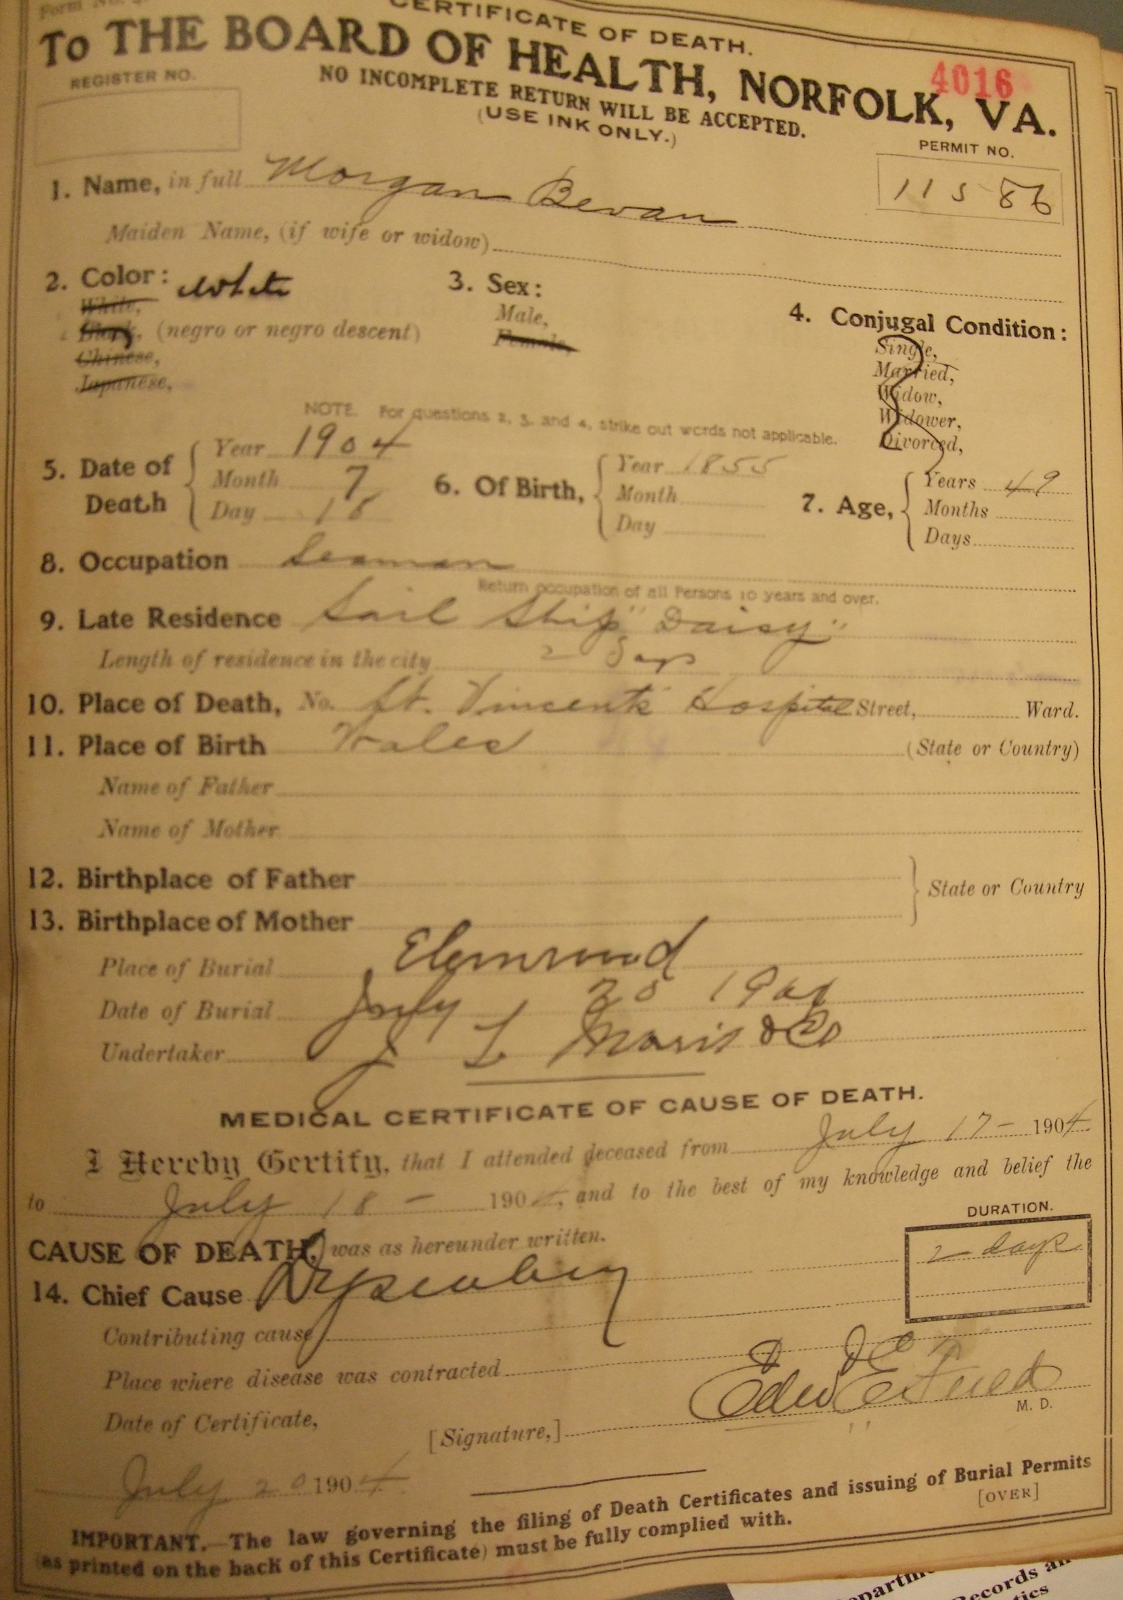 CERTIFICATE OF DEATH.
To THE BOARD OF HEALTH, NORFOLK, VA.
4016
REGISTER NO.
NO INCOMPLETE RETURN WILL BE ACCEPTED.
(USE INK ONLY.)
PERMIT NO.
11586
1. Name, in full Morgan Bevan
Maiden Name, (if wife or widow)
2. Color: White
White,
Black, (negro or negro descent)
Chinese,
Japanese,
3. Sex:
Male,
Female,
4. Conjugal Condition:
Single,
Married,
Widow,
Widower,
Divorced,
?
NOTE. For questions 2, 3, and 4, strike out words not applicable.
5. Date of Death
Year 1904
Month 7
Day 18
6. Of Birth,
Year 1855
Month
Day
7. Age,
Years 49
Months
Days
8. Occupation Seaman
Return occupation of all Persons 10 years and over.
9. Late Residence Sail Ship "Daisy"
Length of residence in the city 2 Days
10. Place of Death, No. St. Vincents Hospital Street, Ward.
11. Place of Birth Wales (State or Country)
Name of Father
Name of Mother
12. Birthplace of Father
13. Birthplace of Mother
State or Country
Place of Burial Elmwood
Date of Burial July 20 1904
Undertaker J L Morris & Co
MEDICAL CERTIFICATE OF CAUSE OF DEATH.
I Hereby Certify, that I attended deceased from July 17 - 1904
to July 18 - 1904, and to the best of my knowledge and belief the
CAUSE OF DEATH, was as hereunder written.
DURATION.
2 days
14. Chief Cause Dysentery
Contributing cause
Place where disease was contracted
Date of Certificate,
[Signature,]
M. D.
July 20 1904
IMPORTANT.—The law governing the filing of Death Certificates and issuing of Burial Permits
(as printed on the back of this Certificate) must be fully complied with.
[OVER]